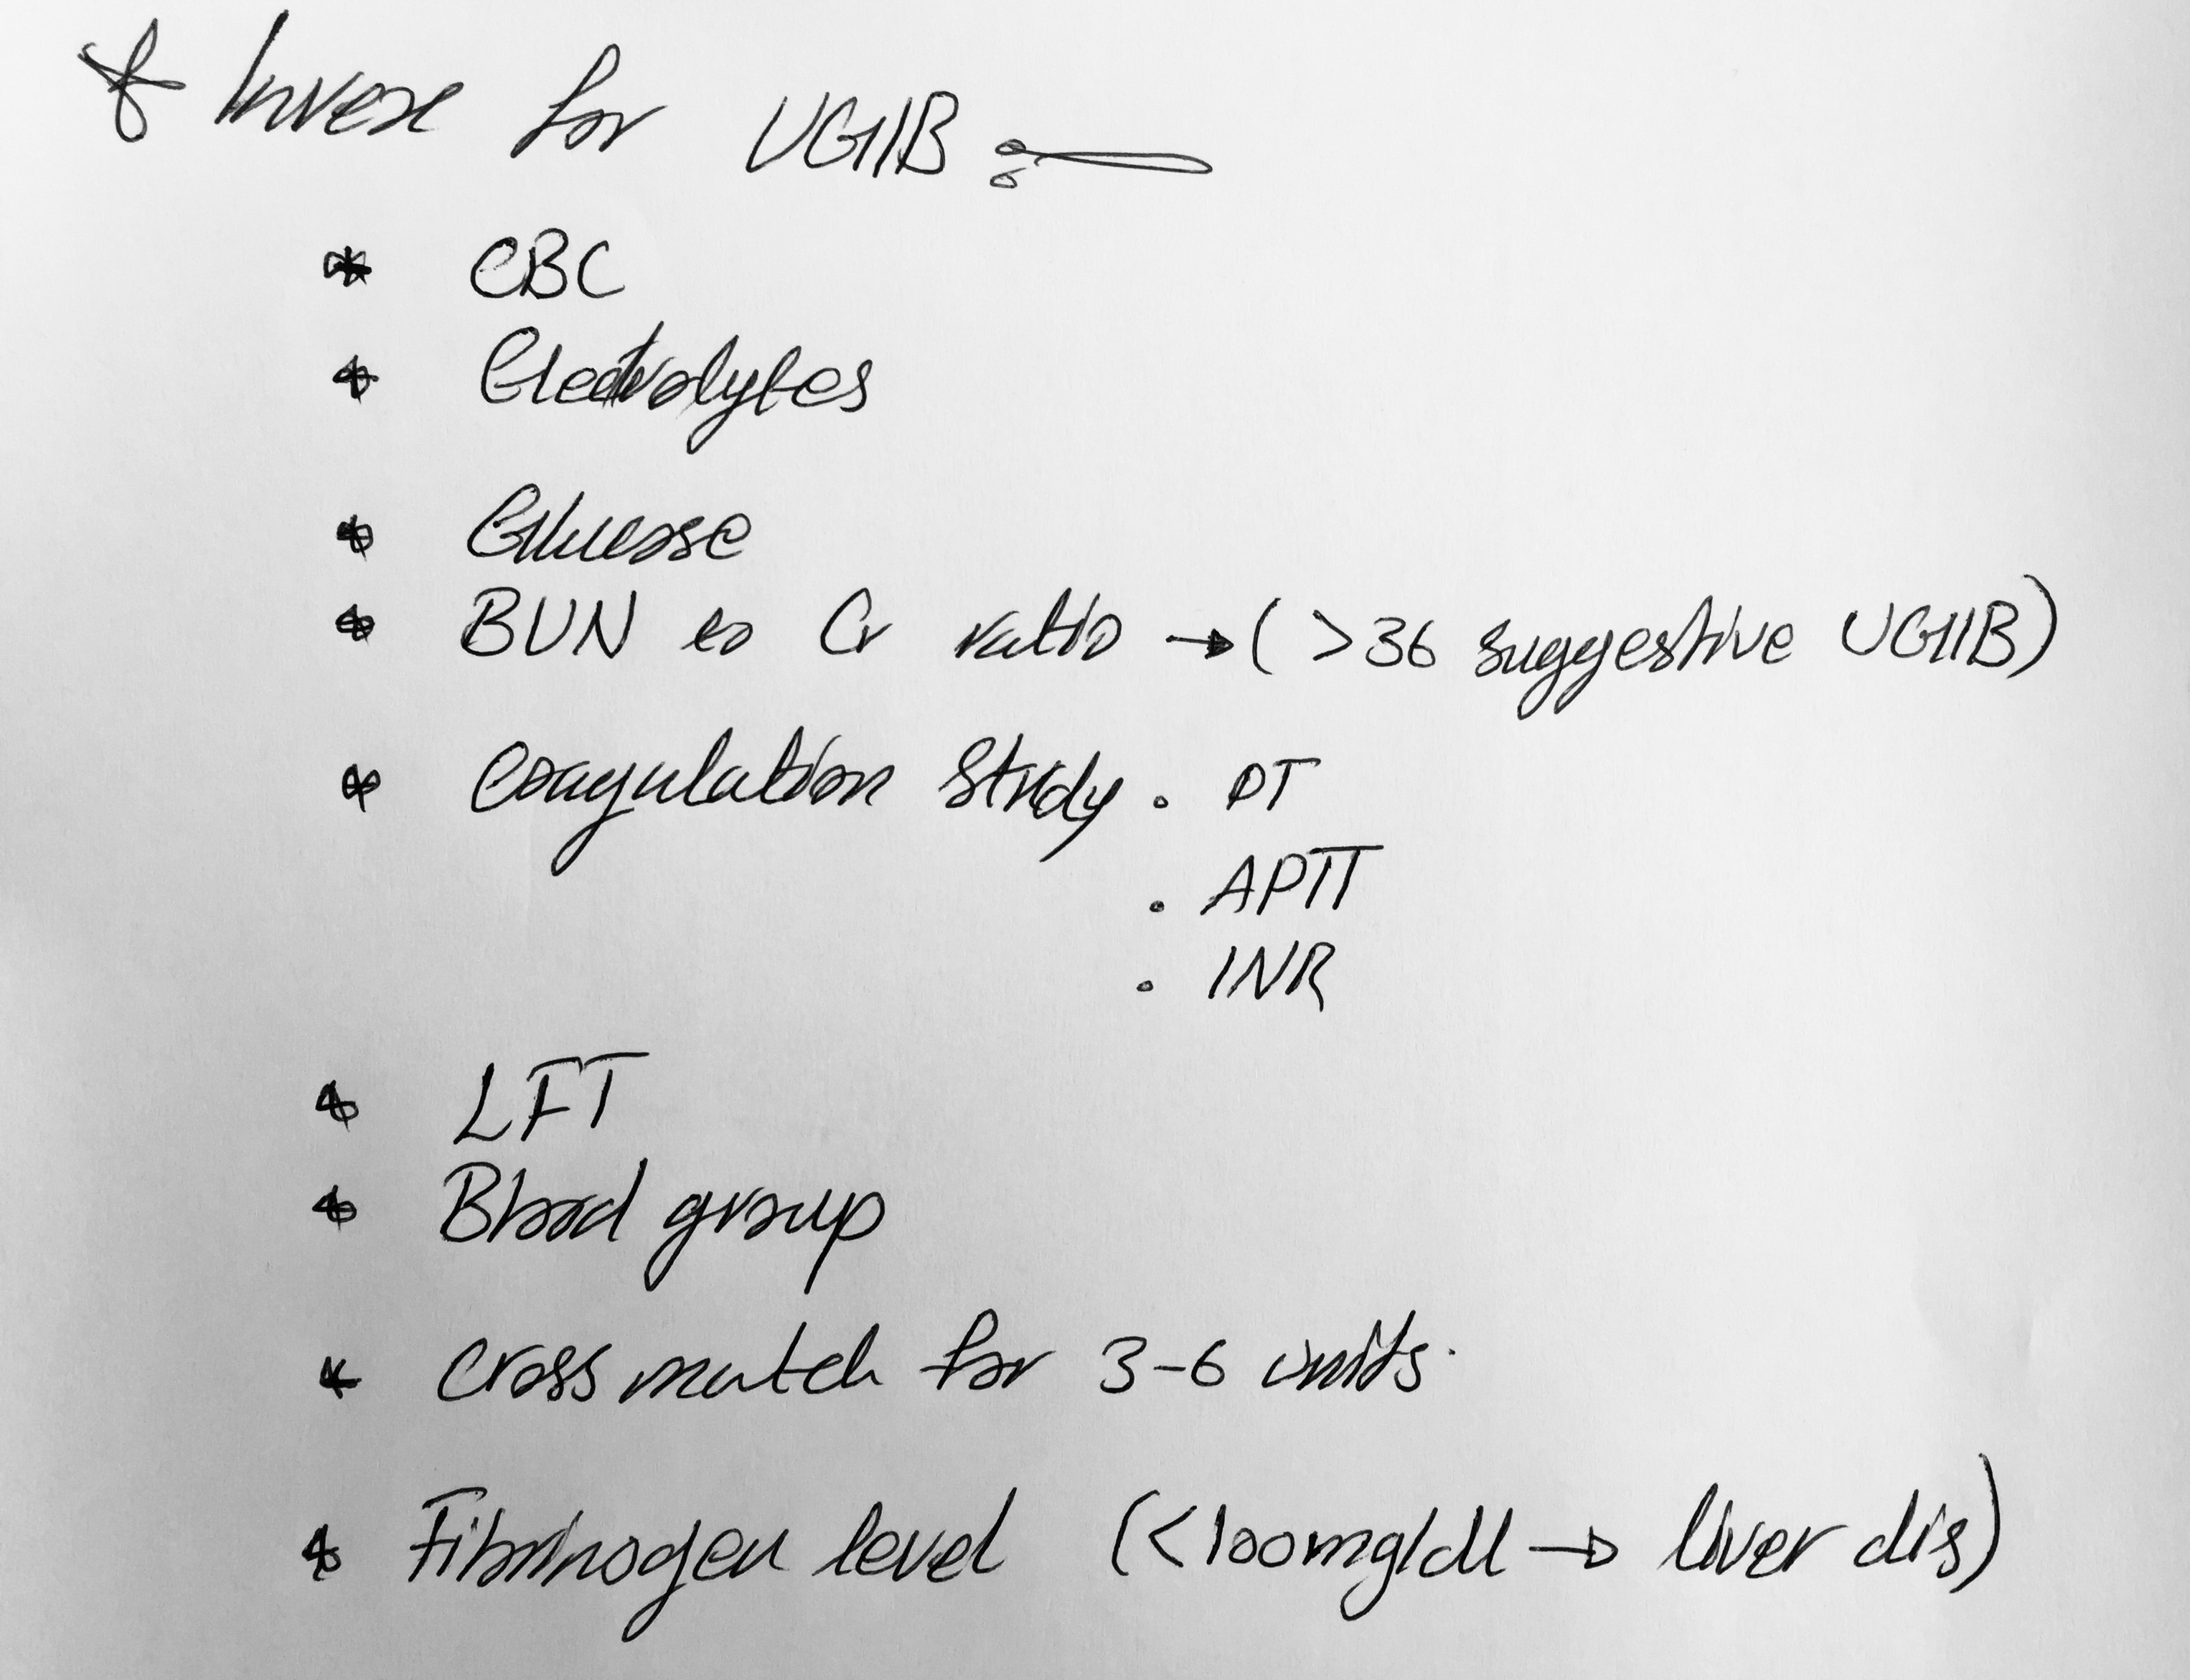 * Invex for UGIB :-
* CBC
* Electrolytes
* Glucose
* BUN to Cr ratio → (>36 suggestive UGIB)
* Coagulation study . PT
. APTT
. INR
* LFT
* Blood group
* cross match for 3-6 units.
* Fibrinogen level (<100mg/dl → liver dis)